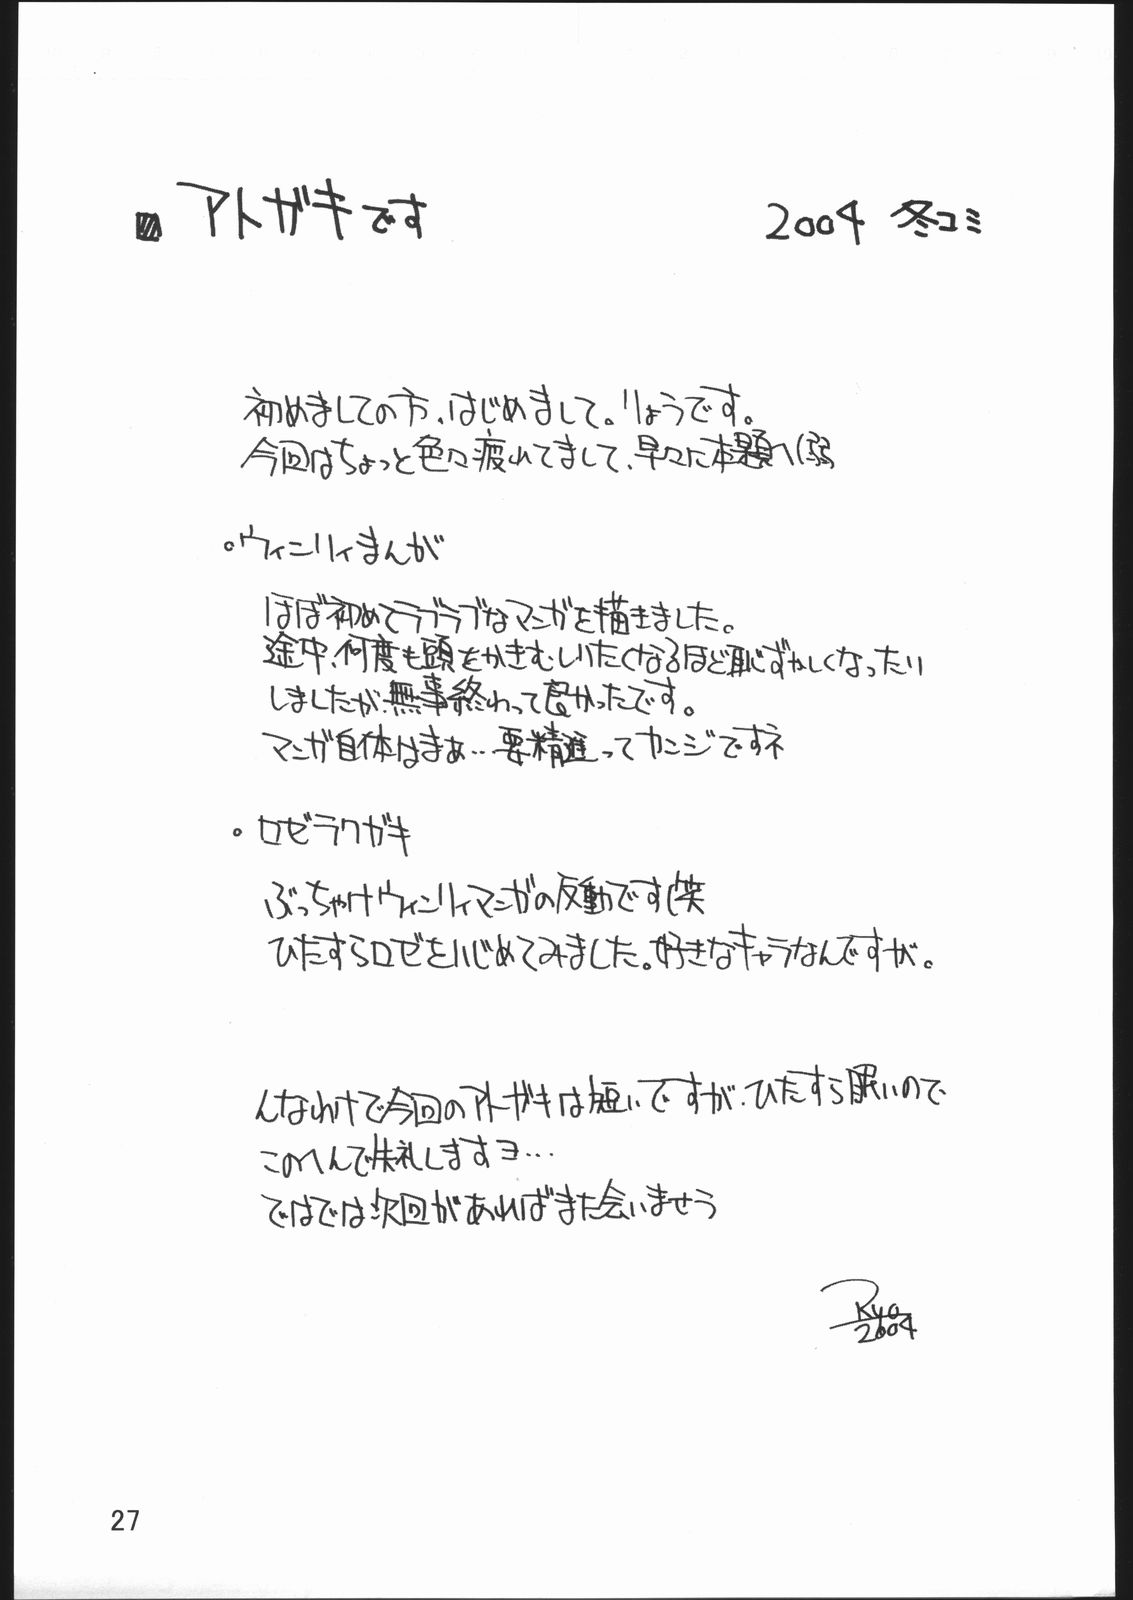 アトガキです
2004 冬コミ
初めましての方、はじめまして。りょうです。
今回はちょっと色々疲れてまして、早々に本題へ(弱
。ウィンリィまんが
ほぼ初めてラブラブなマンガを描きました。
途中、何度も頭をかきむしりたくなるほど恥ずかしくなったり
しましたが、無事終わって良かったです。
マンガ自体はまぁ…要精進ってカンジですネ
。ロゼラクガキ
ぶっちゃけウィンリィマンガの反動です(笑
ひたすらロゼをいじめてみました。好きなキャラなんですが。
んなわけで今回のアトガキは短いですが、ひたすら眠いので
このへんで失礼しますヨ…
ではでは次回があればまた会いませう
Ryo
2004
27